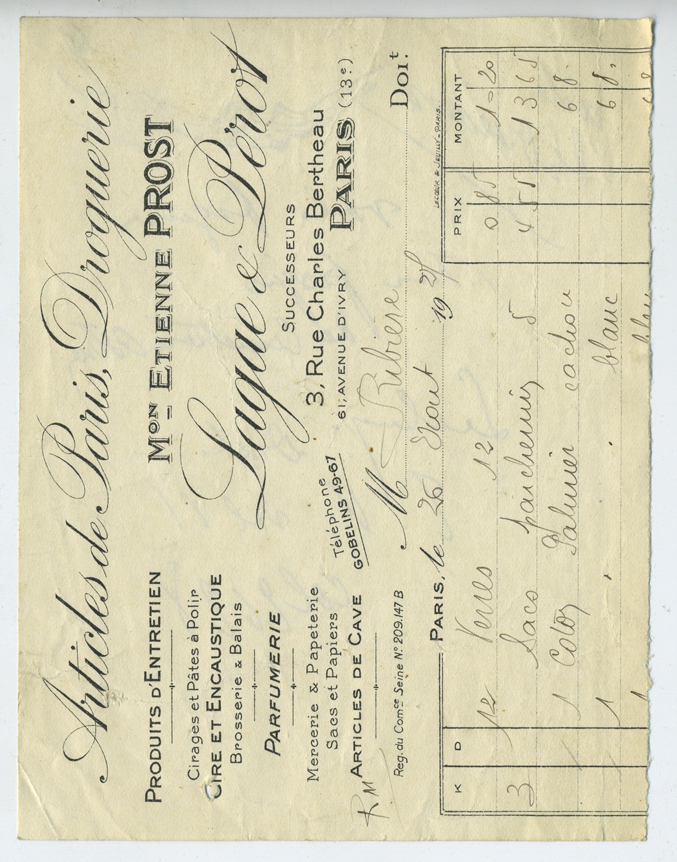 Articles de Paris, Droguerie
Mon ETIENNE PROST
Lagae & Pérot
SUCCESSEURS
3, Rue Charles Bertheau
61, AVENUE D'IVRY PARIS (13e)
PRODUITS D'ENTRETIEN
Cirages et Pâtes à Polir
CIRE ET ENCAUSTIQUE
Brosserie & Balais
PARFUMERIE
Mercerie & Papeterie
Sacs et Papiers
ARTICLES DE CAVE
Téléphone
GOBELINS 49-67
RM
Reg. du Comce Seine No 209.147 B
M Ribiere Doit
PARIS, le 26 Août 1927
LECŒUR & JEUILLY-PARIS.
K D PRIX MONTANT
12 Verres 12 0 85 1 20
3 Sacs parchemin 5 4 55 13 65
1 Palmier cachou 6 8.
1 blanc 6 8.
1